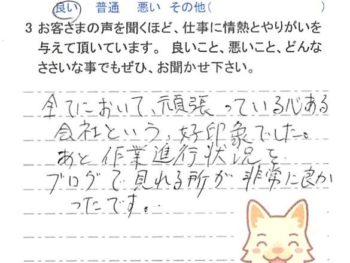 良い 普通 悪い その他( )
3 お客さまの声を聞くほど、仕事に情熱とやりがいを
与えて頂いています。 良いこと、悪いこと、どんな
ささいな事でもぜひ、お聞かせ下さい。
全てにおいて、頑張っている心ある
会社という、好印象でした。
あと作業進行状況を
ブログで見れる所が非常に良か
ったです。